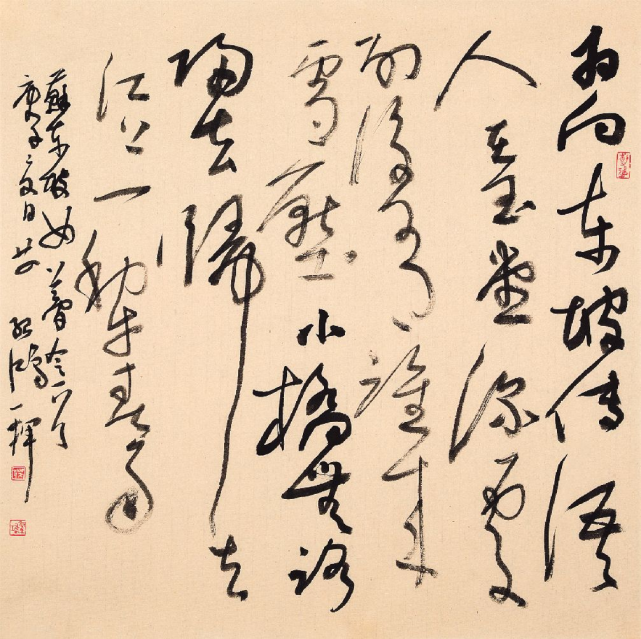 為向東坡傳語
人在玉堂深處
別後有誰來
雪壓小橋無路
歸去歸去
江上一犁春雨
蘇東坡如夢令
庚子夏日 鴻一揮